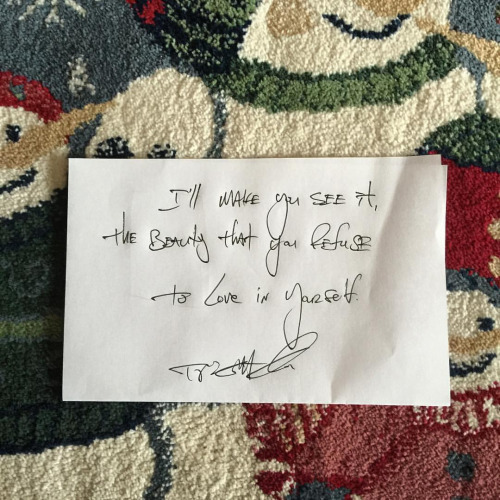 I'll make you see it,
the Beauty that you Refuse
to Love in yourself.